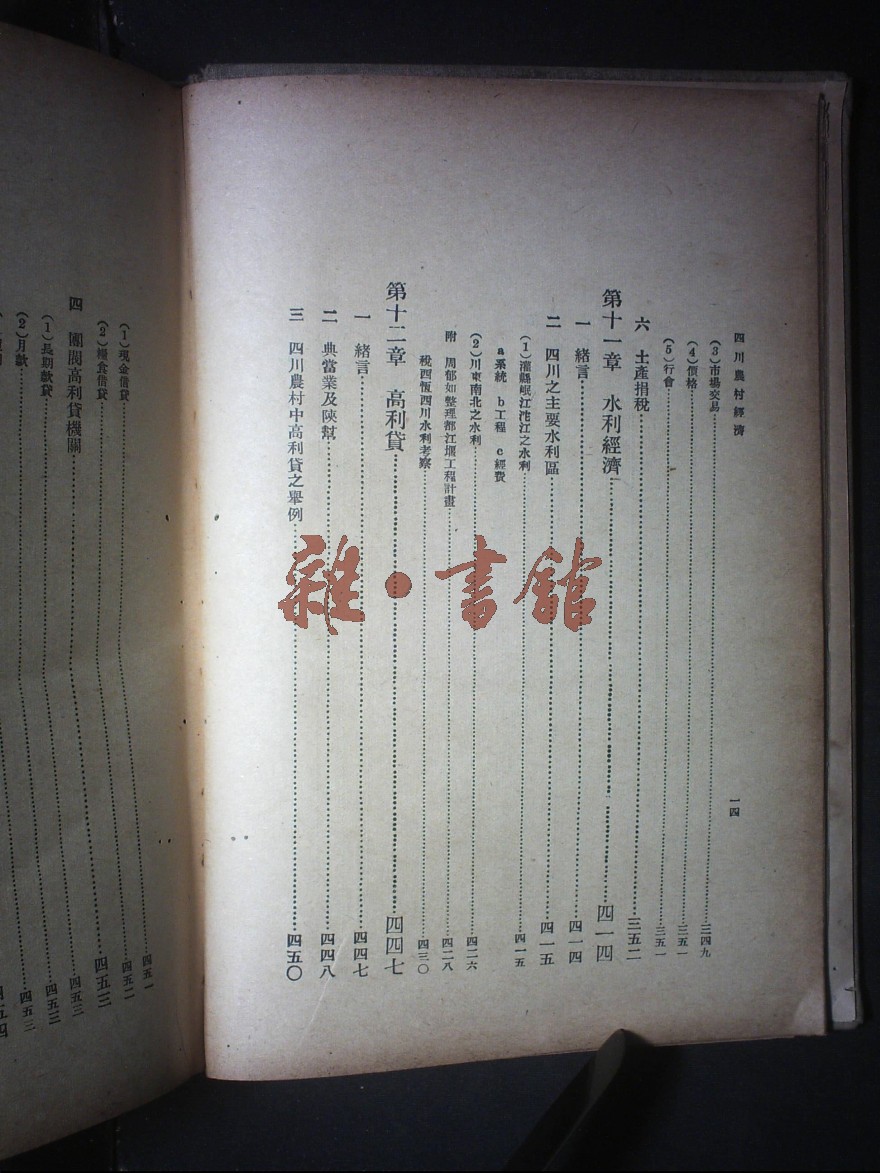 四川農村經濟
一四
(3)市場交易……三四九
(4)價格……三五一
(5)行會……三五一
六 土產捐稅……三五二
第十一章 水利經濟……四一四
一 緒言……四一四
二 四川之主要水利區……四一五
(1)灌縣岷江沱江之水利……四一五
a系統 b工程 c經費
(2)川東南北之水利……四二六
附 周郁如整理都江堰工程計畫……四二八
稅西恆四川水利考察……四三〇
第十二章 高利貸……四四七
一 緒言……四四七
二 典當業及陝幫……四四八
三 四川農村中高利貸之舉例……四五〇
雜·書館
(1)現金借貸……四五一
(2)糧食借貸……四五二
四 團閥高利貸機關……四五三
(1)長期款貸……四五三
(2)月款……四五三
四五四